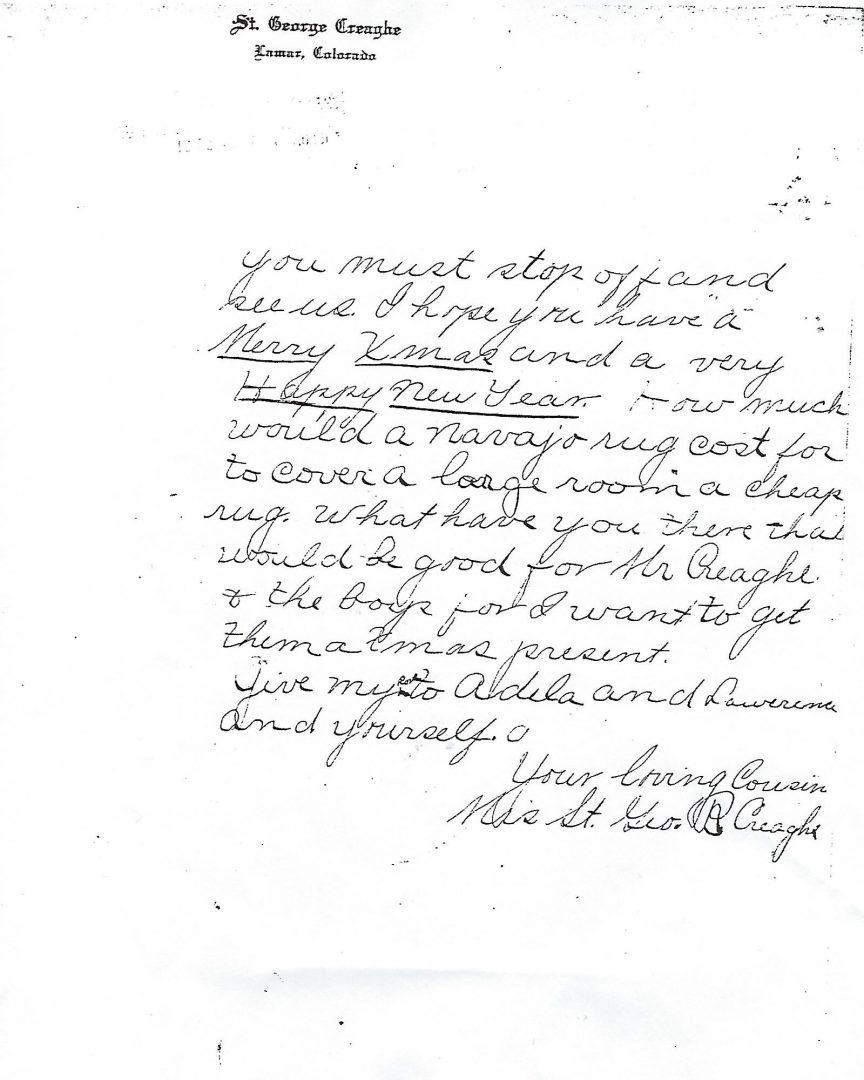 St. George Creaghe
Lamar, Colorado
you must stop off and
see us. I hope you have a
Merry Xmas and a very
Happy New Year. How much
would a navajo rug cost for
to cover a large room a cheap
rug. What have you there that
would be good for Mr Creaghe.
& the boys for I want to get
them a Xmas present.
Give my to Adela and
and yourself.
Your loving Cousin
Mrs St. Geo. R Creaghe